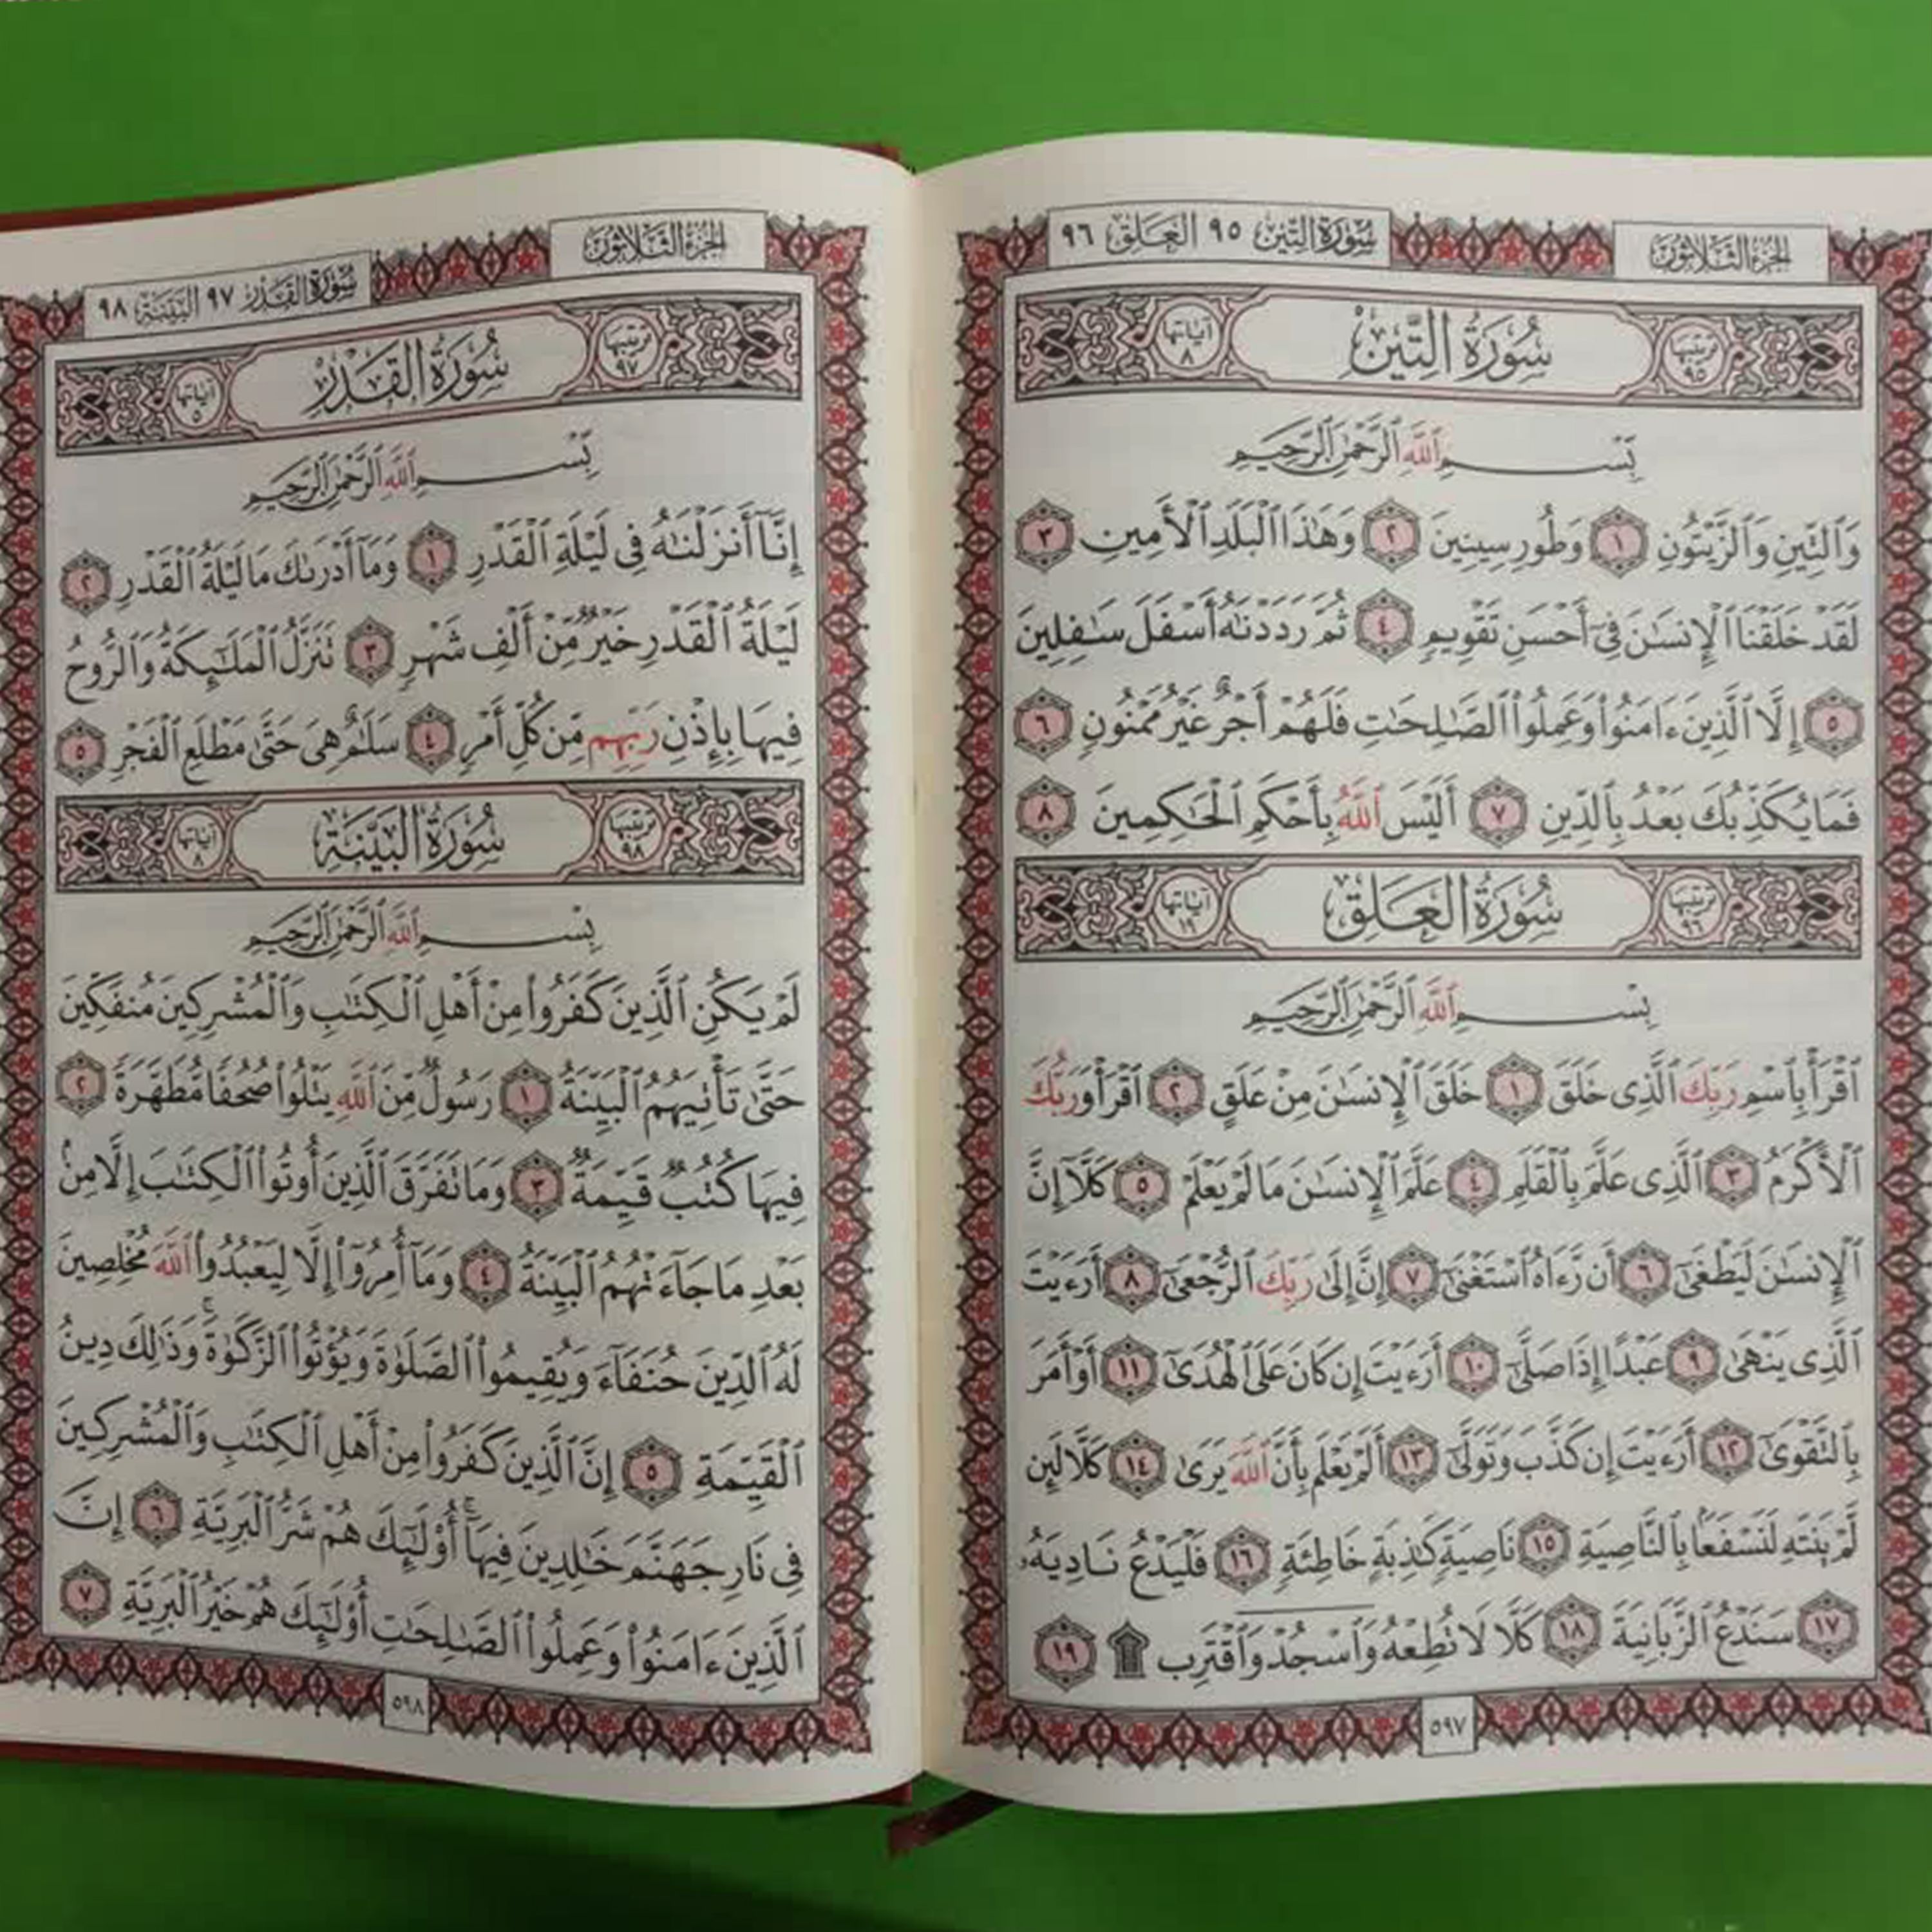 الجزء الثلاثون
سورة التين ٩٥ العلق ٩٦
ترتيبها ٩٥
سُورَةُ التِّينِ
آياتها ٨
بِسْمِ ٱللَّهِ ٱلرَّحْمَٰنِ ٱلرَّحِيمِ
وَٱلتِّينِ وَٱلزَّيْتُونِ ١ وَطُورِ سِينِينَ ٢ وَهَٰذَا ٱلْبَلَدِ ٱلْأَمِينِ ٣
لَقَدْ خَلَقْنَا ٱلْإِنسَٰنَ فِىٓ أَحْسَنِ تَقْوِيمٍ ٤ ثُمَّ رَدَدْنَٰهُ أَسْفَلَ سَٰفِلِينَ
٥ إِلَّا ٱلَّذِينَ ءَامَنُوا۟ وَعَمِلُوا۟ ٱلصَّٰلِحَٰتِ فَلَهُمْ أَجْرٌ غَيْرُ مَمْنُونٍ ٦
فَمَا يُكَذِّبُكَ بَعْدُ بِٱلدِّينِ ٧ أَلَيْسَ ٱللَّهُ بِأَحْكَمِ ٱلْحَٰكِمِينَ ٨
ترتيبها ٩٦
سُورَةُ العَلَقِ
آياتها ١٩
بِسْمِ ٱللَّهِ ٱلرَّحْمَٰنِ ٱلرَّحِيمِ
ٱقْرَأْ بِٱسْمِ رَبِّكَ ٱلَّذِى خَلَقَ ١ خَلَقَ ٱلْإِنسَٰنَ مِنْ عَلَقٍ ٢ ٱقْرَأْ وَرَبُّكَ
ٱلْأَكْرَمُ ٣ ٱلَّذِى عَلَّمَ بِٱلْقَلَمِ ٤ عَلَّمَ ٱلْإِنسَٰنَ مَا لَمْ يَعْلَمْ ٥ كَلَّآ إِنَّ
ٱلْإِنسَٰنَ لَيَطْغَىٰٓ ٦ أَن رَّءَاهُ ٱسْتَغْنَىٰٓ ٧ إِنَّ إِلَىٰ رَبِّكَ ٱلرُّجْعَىٰٓ ٨ أَرَءَيْتَ
ٱلَّذِى يَنْهَىٰ ٩ عَبْدًا إِذَا صَلَّىٰٓ ١٠ أَرَءَيْتَ إِن كَانَ عَلَى ٱلْهُدَىٰٓ ١١ أَوْ أَمَرَ
بِٱلتَّقْوَىٰٓ ١٢ أَرَءَيْتَ إِن كَذَّبَ وَتَوَلَّىٰٓ ١٣ أَلَمْ يَعْلَم بِأَنَّ ٱللَّهَ يَرَىٰ ١٤ كَلَّا لَئِن
لَّمْ يَنتَهِ لَنَسْفَعًۢا بِٱلنَّاصِيَةِ ١٥ نَاصِيَةٍ كَٰذِبَةٍ خَاطِئَةٍ ١٦ فَلْيَدْعُ نَادِيَهُۥ
١٧ سَنَدْعُ ٱلزَّبَانِيَةَ ١٨ كَلَّا لَا تُطِعْهُ وَٱسْجُدْ وَٱقْتَرِب ۩ ١٩
٥٩٧
الجزء الثلاثون
سورة القدر ٩٧ البينة ٩٨
ترتيبها ٩٧
سُورَةُ القَدْرِ
آياتها ٥
بِسْمِ ٱللَّهِ ٱلرَّحْمَٰنِ ٱلرَّحِيمِ
إِنَّآ أَنزَلْنَٰهُ فِى لَيْلَةِ ٱلْقَدْرِ ١ وَمَآ أَدْرَىٰكَ مَا لَيْلَةُ ٱلْقَدْرِ ٢
لَيْلَةُ ٱلْقَدْرِ خَيْرٌ مِّنْ أَلْفِ شَهْرٍ ٣ تَنَزَّلُ ٱلْمَلَٰٓئِكَةُ وَٱلرُّوحُ
فِيهَا بِإِذْنِ رَبِّهِم مِّن كُلِّ أَمْرٍ ٤ سَلَٰمٌ هِىَ حَتَّىٰ مَطْلَعِ ٱلْفَجْرِ ٥
ترتيبها ٩٨
سُورَةُ البَيِّنَةِ
آياتها ٨
بِسْمِ ٱللَّهِ ٱلرَّحْمَٰنِ ٱلرَّحِيمِ
لَمْ يَكُنِ ٱلَّذِينَ كَفَرُوا۟ مِنْ أَهْلِ ٱلْكِتَٰبِ وَٱلْمُشْرِكِينَ مُنفَكِّينَ
حَتَّىٰ تَأْتِيَهُمُ ٱلْبَيِّنَةُ ١ رَسُولٌ مِّنَ ٱللَّهِ يَتْلُوا۟ صُحُفًا مُّطَهَّرَةً ٢
فِيهَا كُتُبٌ قَيِّمَةٌ ٣ وَمَا تَفَرَّقَ ٱلَّذِينَ أُوتُوا۟ ٱلْكِتَٰبَ إِلَّا مِنۢ
بَعْدِ مَا جَآءَتْهُمُ ٱلْبَيِّنَةُ ٤ وَمَآ أُمِرُوٓا۟ إِلَّا لِيَعْبُدُوا۟ ٱللَّهَ مُخْلِصِينَ
لَهُ ٱلدِّينَ حُنَفَآءَ وَيُقِيمُوا۟ ٱلصَّلَوٰةَ وَيُؤْتُوا۟ ٱلزَّكَوٰةَ ۚ وَذَٰلِكَ دِينُ
ٱلْقَيِّمَةِ ٥ إِنَّ ٱلَّذِينَ كَفَرُوا۟ مِنْ أَهْلِ ٱلْكِتَٰبِ وَٱلْمُشْرِكِينَ
فِى نَارِ جَهَنَّمَ خَٰلِدِينَ فِيهَآ ۚ أُو۟لَٰٓئِكَ هُمْ شَرُّ ٱلْبَرِيَّةِ ٦ إِنَّ
ٱلَّذِينَ ءَامَنُوا۟ وَعَمِلُوا۟ ٱلصَّٰلِحَٰتِ أُو۟لَٰٓئِكَ هُمْ خَيْرُ ٱلْبَرِيَّةِ ٧
٥٩٨